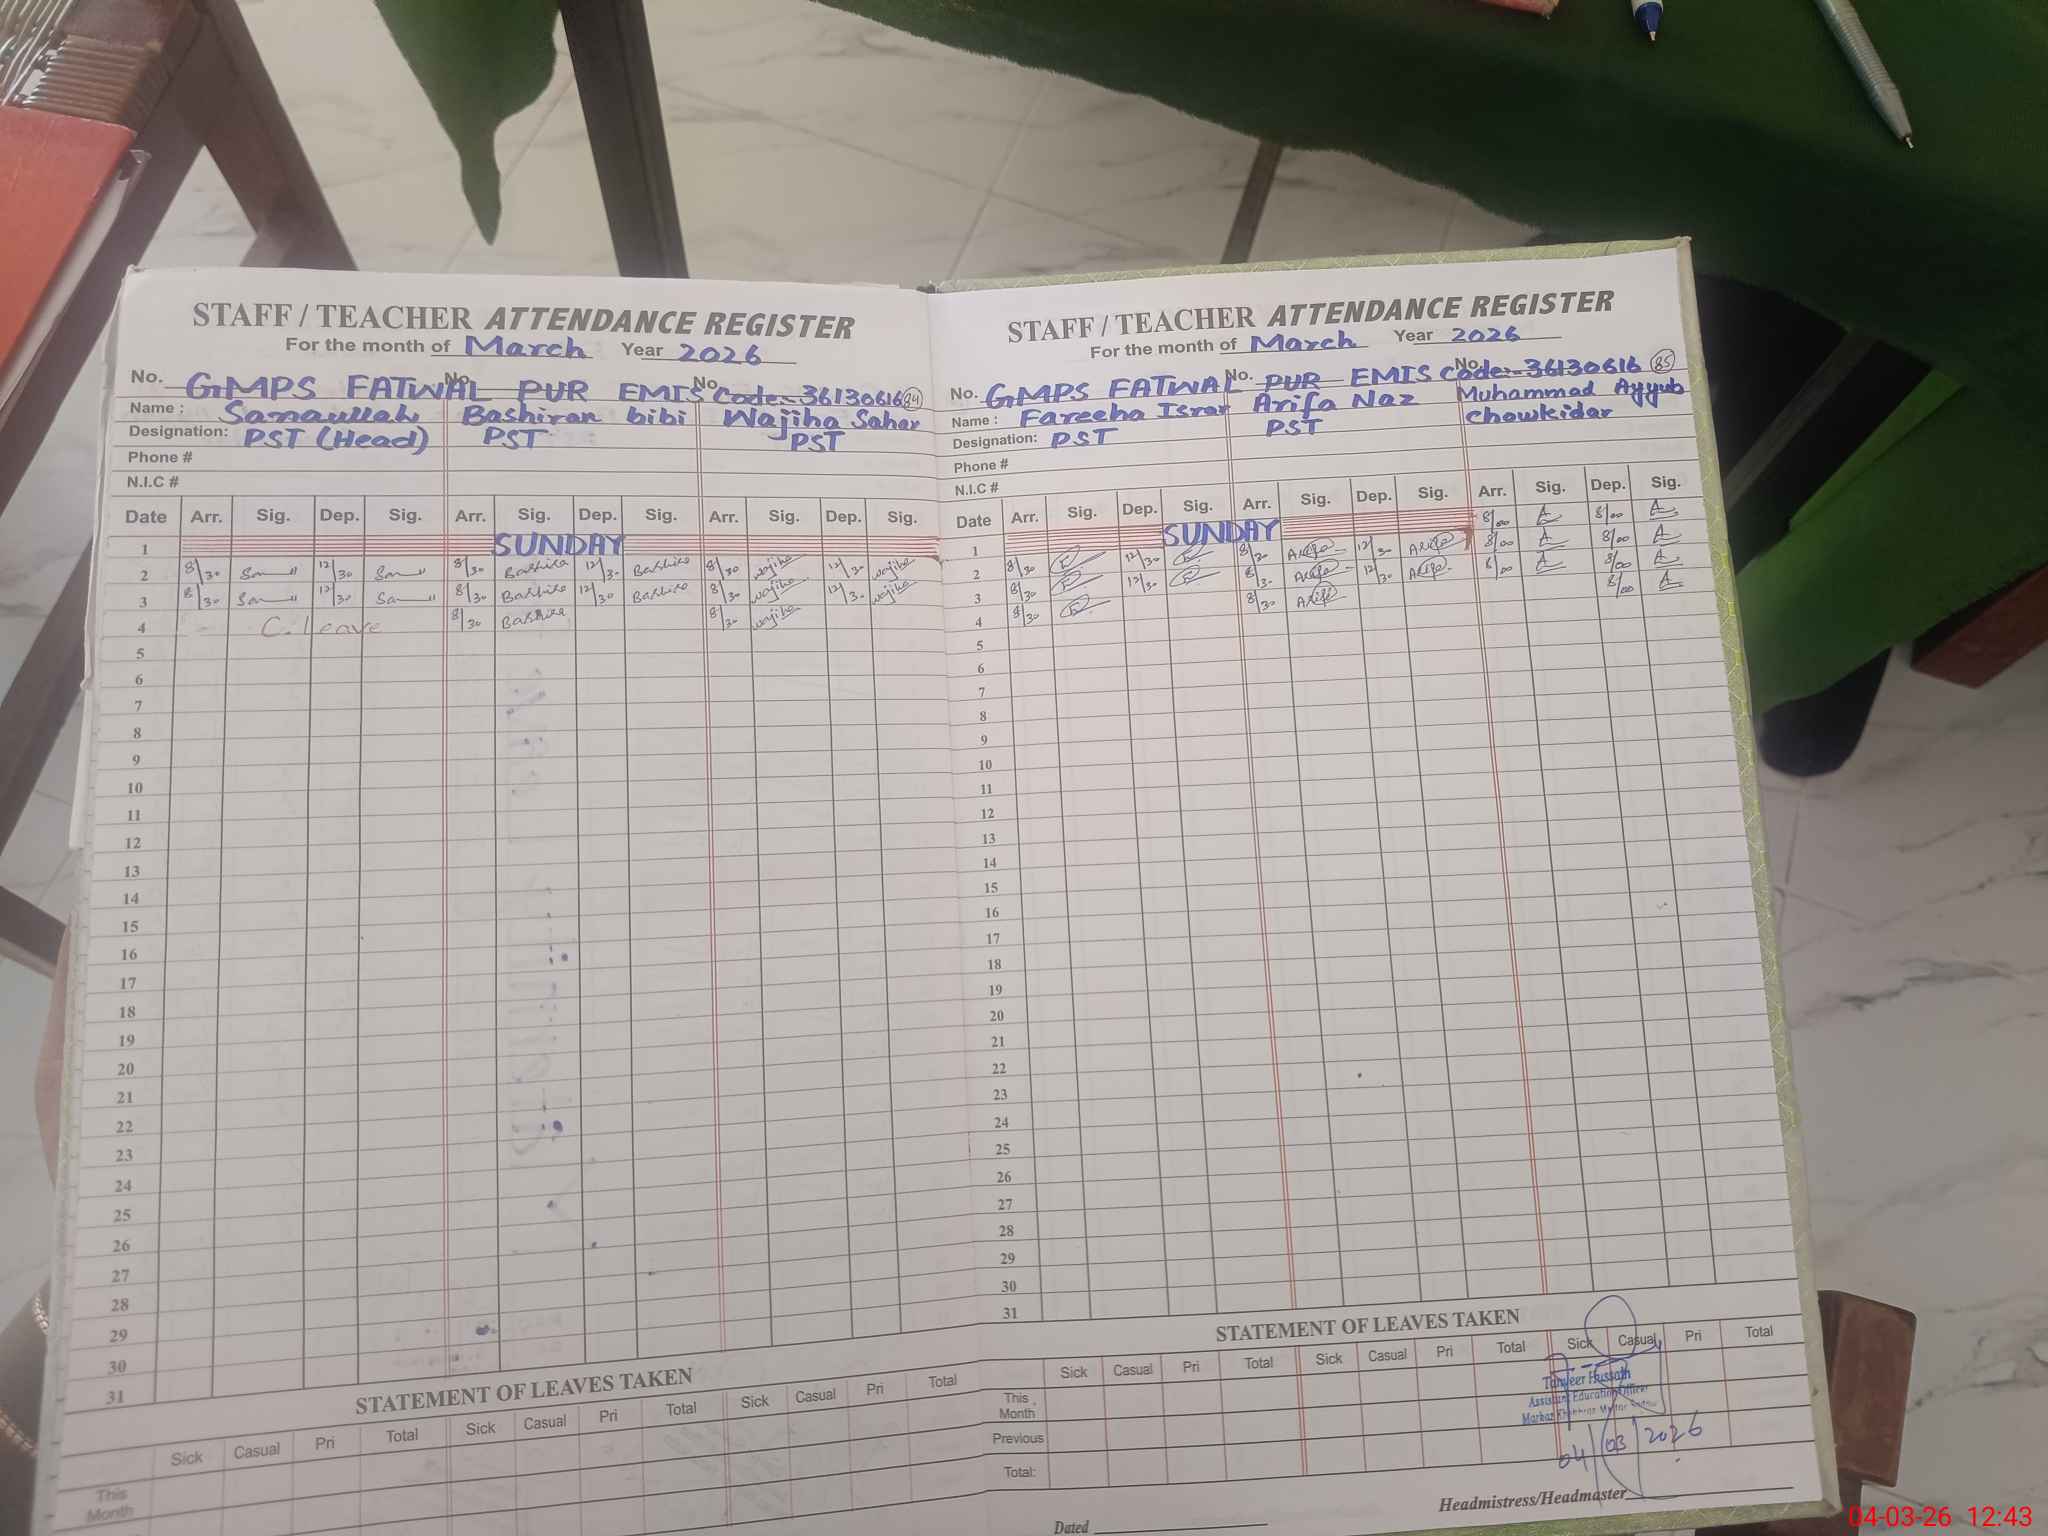 STAFF / TEACHER ATTENDANCE REGISTER
For the month of March Year 2026
No. GMPS FATWAL No. PUR EMIS No. Code:-36130616 84
Name : Sanaullah Bashiran bibi Wajiha Sahar
Designation: PST (Head) PST PST
Phone #
N.I.C #
Date Arr. Sig. Dep. Sig. Arr. Sig. Dep. Sig. Arr. Sig. Dep. Sig.
1 SUNDAY
2 8/30 12/30 8/30 Bashira 12/30 Bashira 8/30 Wajiha 12/30 Wajiha
3 8/30 12/30 8/30 Bashira 12/30 Bashira 8/30 Wajiha 12/30 Wajiha
4 C. leave 8/30 Bashira 8/30 Wajiha
5
6
7
8
9
10
11
12
13
14
15
16
17
18
19
20
21
22
23
24
25
26
27
28
29
30
31
STATEMENT OF LEAVES TAKEN
Sick Casual Pri Total Sick Casual Pri Total Sick Casual Pri Total
This
Month
STAFF / TEACHER ATTENDANCE REGISTER
For the month of March Year 2026
No. GMPS FATWAL No. PUR EMIS No. Code:-36130616 85
Name : Fareeha Israr Arifa Naz Muhammad Ayyub
Designation: PST PST Chowkidar
Phone #
N.I.C #
Date Arr. Sig. Dep. Sig. Arr. Sig. Dep. Sig. Arr. Sig. Dep. Sig.
1 SUNDAY 8/00 A 8/00 A
2 8/30 12/30 8/30 Arifa 12/30 Arifa 8/00 A 8/00 A
3 8/30 12/30 8/30 Arifa 12/30 Arifa 8/00 A 8/00 A
4 8/30 8/30 Arifa 8/00 A
5
6
7
8
9
10
11
12
13
14
15
16
17
18
19
20
21
22
23
24
25
26
27
28
29
30
31
STATEMENT OF LEAVES TAKEN
Sick Casual Pri Total Sick Casual Pri Total Sick Casual Pri Total
This
Month
Previous
Total:
Tanveer Hussain
Assistant Education Officer
Markaz
04/03/2026
Headmistress/Headmaster
Dated
04-03-26 12:43